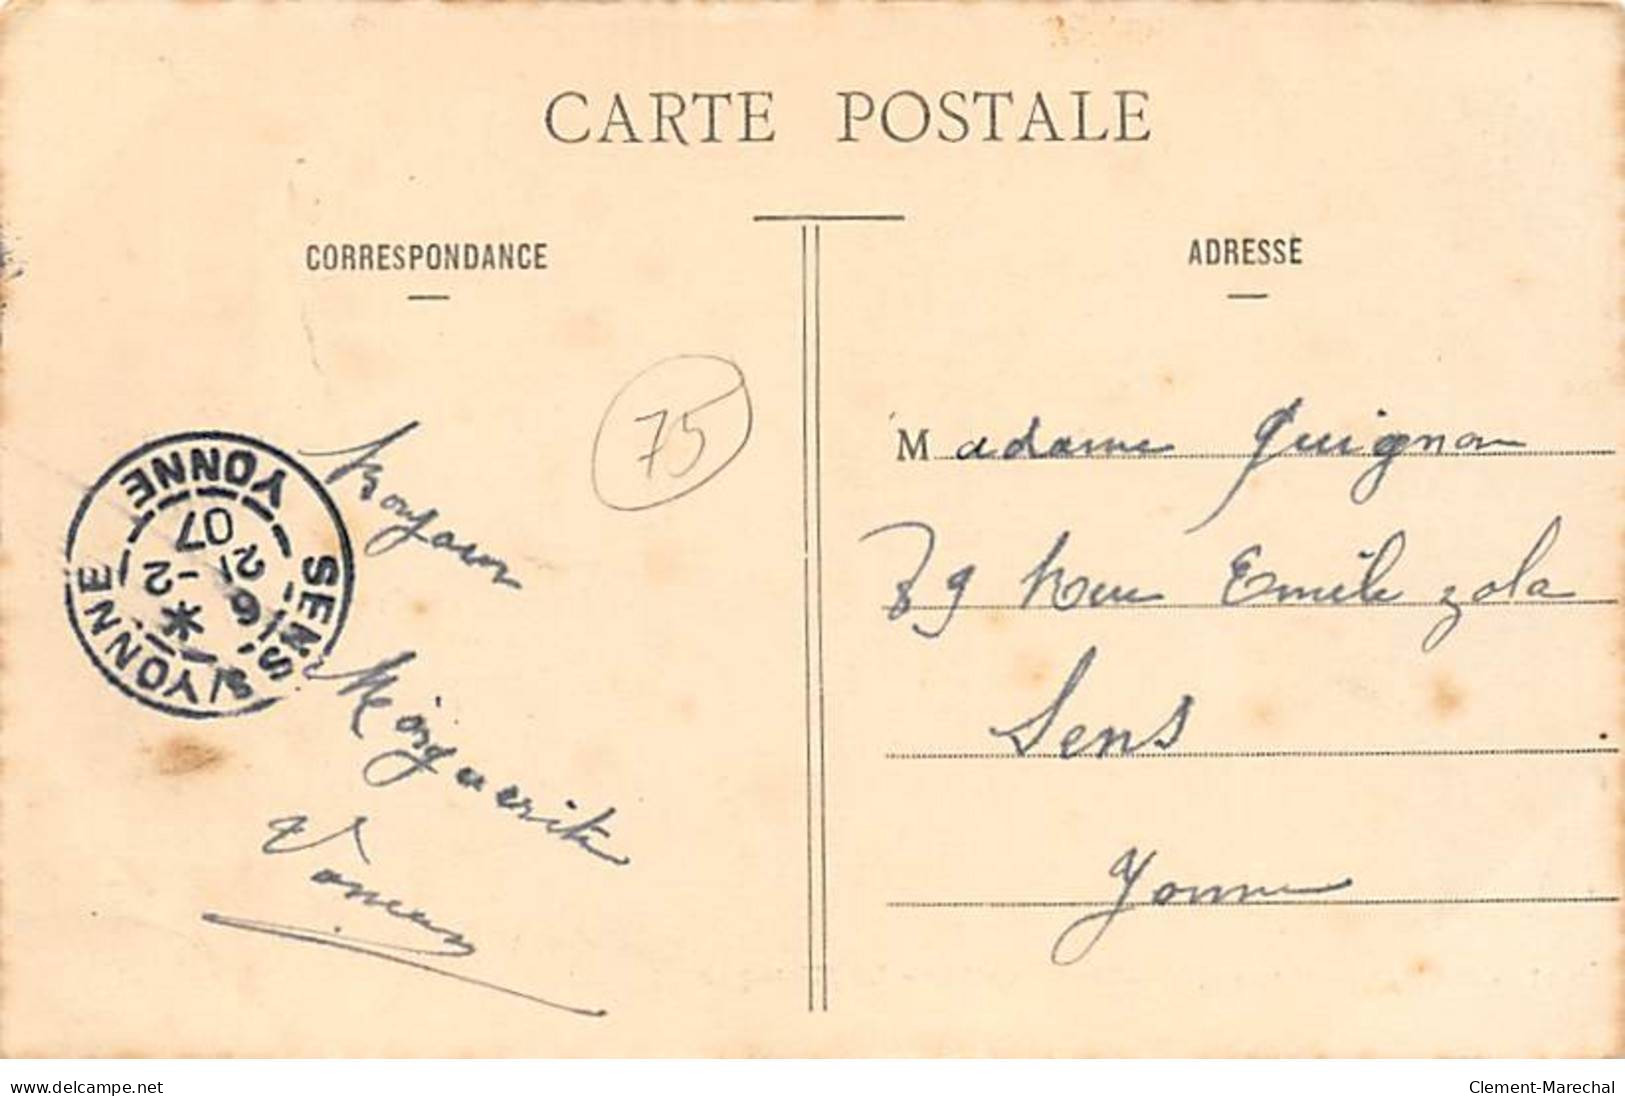 CARTE POSTALE
CORRESPONDANCE
ADRESSE
75
Bonjour
Marguerite
SENS S/YONNE YONNE
* 2 -
6 - 2
07
Madame Guignon
79 Rue Emile Zola
Sens
Yonne
www.delcampe.net
Clement-Marechal